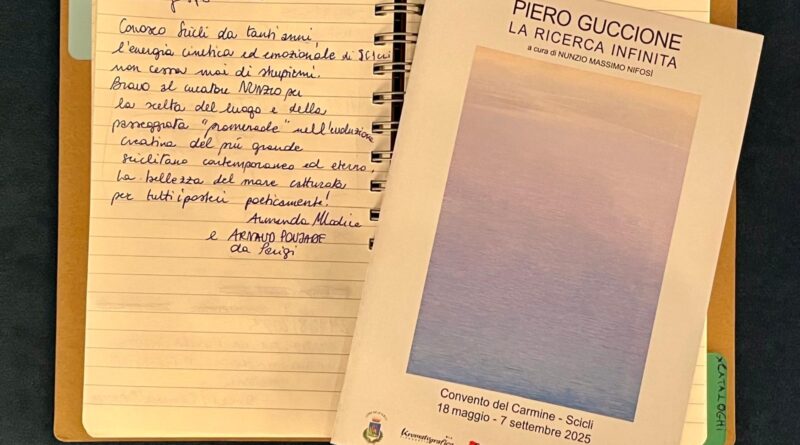 Conosco Scicli da tanti anni,
l'energia cinetica ed emozionale di Scicli
non cessa mai di stupirmi.
Bravo al curatore NUNZIO per
la scelta del luogo e della
passeggiata "promenade" nell'evoluzione
creativa del più grande
sciclitano contemporaneo ed eterno.
La bellezza del mare catturata
per tutti i posteri poeticamente!
e ARNAUD
da Parigi
PIERO GUCCIONE
LA RICERCA INFINITA
a cura di NUNZIO MASSIMO NIFOSÌ
Convento del Carmine - Scicli
18 maggio - 7 settembre 2025
Kromatografica
xCATALOGHI